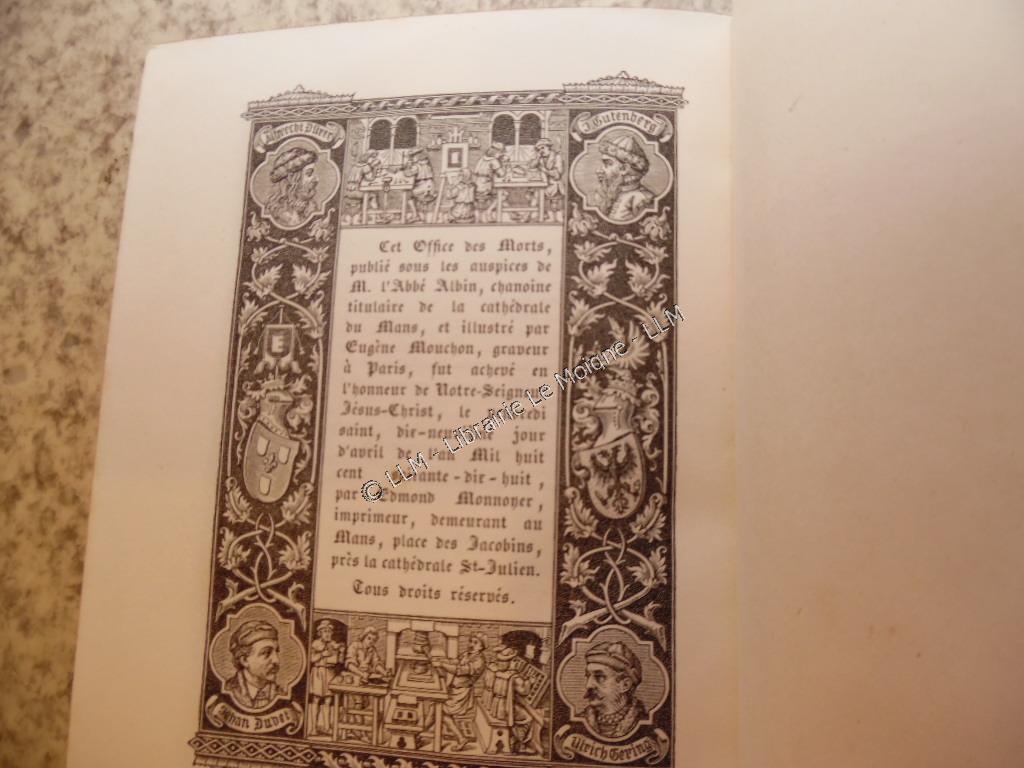 Albrecht Dürer
J. Gutenberg
Cet Office des Morts,
publié sous les auspices de
M. l'Abbé Albin, chanoine
titulaire de la cathédrale
du Mans, et illustré par
Eugène Mouchon, graveur
à Paris, fut achevé en
l'honneur de Notre-Seigneur
Jésus-Christ, le
saint, dix-neuvième jour
d'avril de l'an Mil huit
cent - dix - huit,
par Edmond Monnoyer,
imprimeur, demeurant au
Mans, place des Jacobins,
près la cathédrale St-Julien.
Tous droits réservés.
Jehan Duvet
Ulrich Gering
© LLM - Librairie Le Moigne - LLM